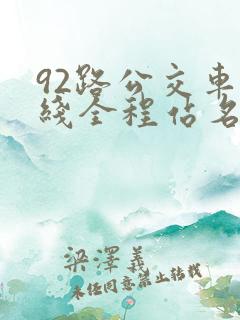 92路公交車
綫全程佔名
梁澤義
未经同意禁止转载